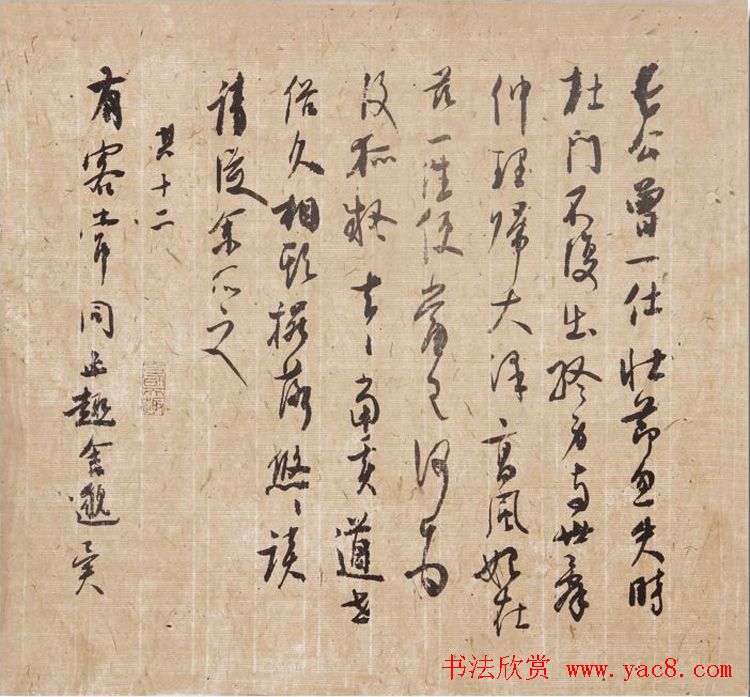 長公曾一仕壯節忽失時
杜門不復出終身與世辭
仲理歸大澤高風始在
茲一往便當已何為
復狐疑去〻當奚道世
俗久相欺擺落悠〻談
請從余所之
其十二
有客常同止趣舍邈異
书法欣赏 www.yac8.com